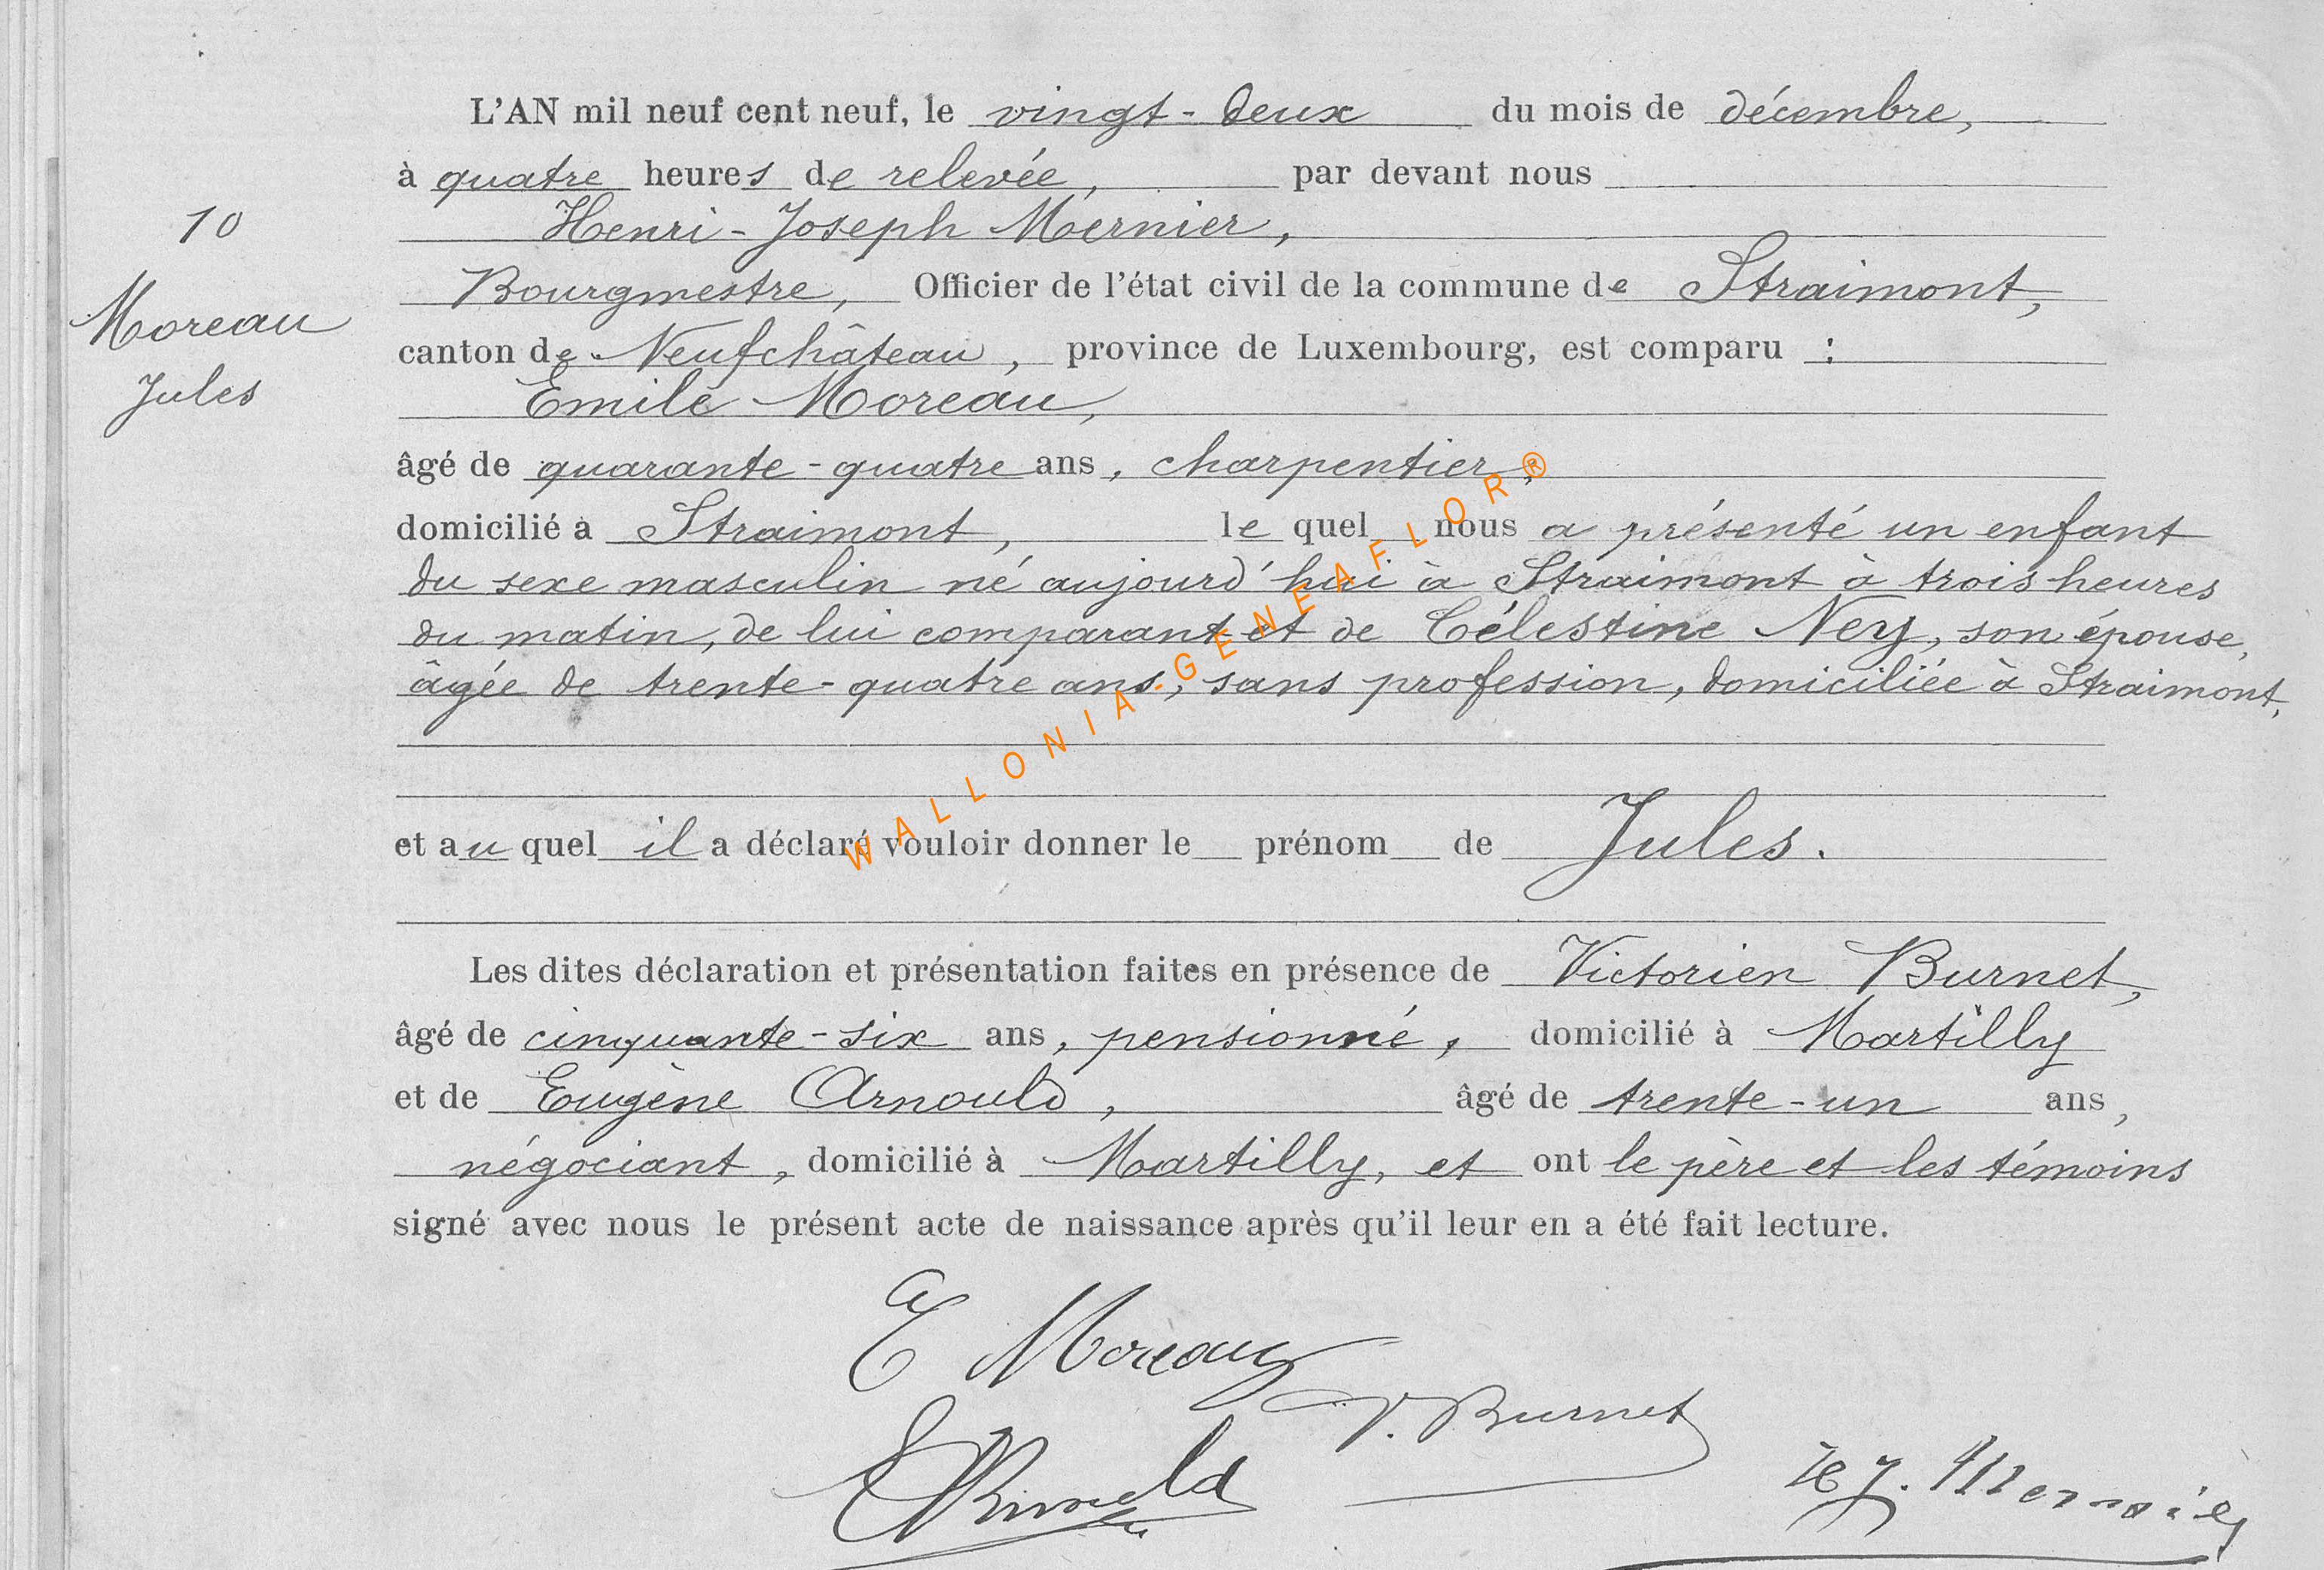 L'AN mil neuf cent neuf, le vingt-deux du mois de décembre,
à quatre heures de relevée, par devant nous
Henri-Joseph Mernier,
Bourgmestre, Officier de l'état civil de la commune de Straimont,
canton de Neufchâteau, province de Luxembourg, est comparu :
Emile Moreau,
âgé de quarante-quatre ans, charpentier,
domicilié à Straimont, le quel nous a présenté un enfant
du sexe masculin né aujourd'hui à Straimont à trois heures
du matin, de lui comparant et de Célestine Ney, son épouse,
âgée de trente-quatre ans, sans profession, domiciliée à Straimont,
et au quel il a déclaré vouloir donner le prénom de Jules.
Les dites déclaration et présentation faites en présence de Victorien Burnet,
âgé de cinquante-six ans, pensionné, domicilié à Martilly
et de Eugène Arnould, âgé de trente-un ans,
négociant, domicilié à Martilly, et ont le père et les témoins
signé avec nous le présent acte de naissance après qu'il leur en a été fait lecture.
10
Moreau
Jules
E Moreau
V. Burnet
EArnould
H J. Mernier
WALLONIA-GENEAFLOR®